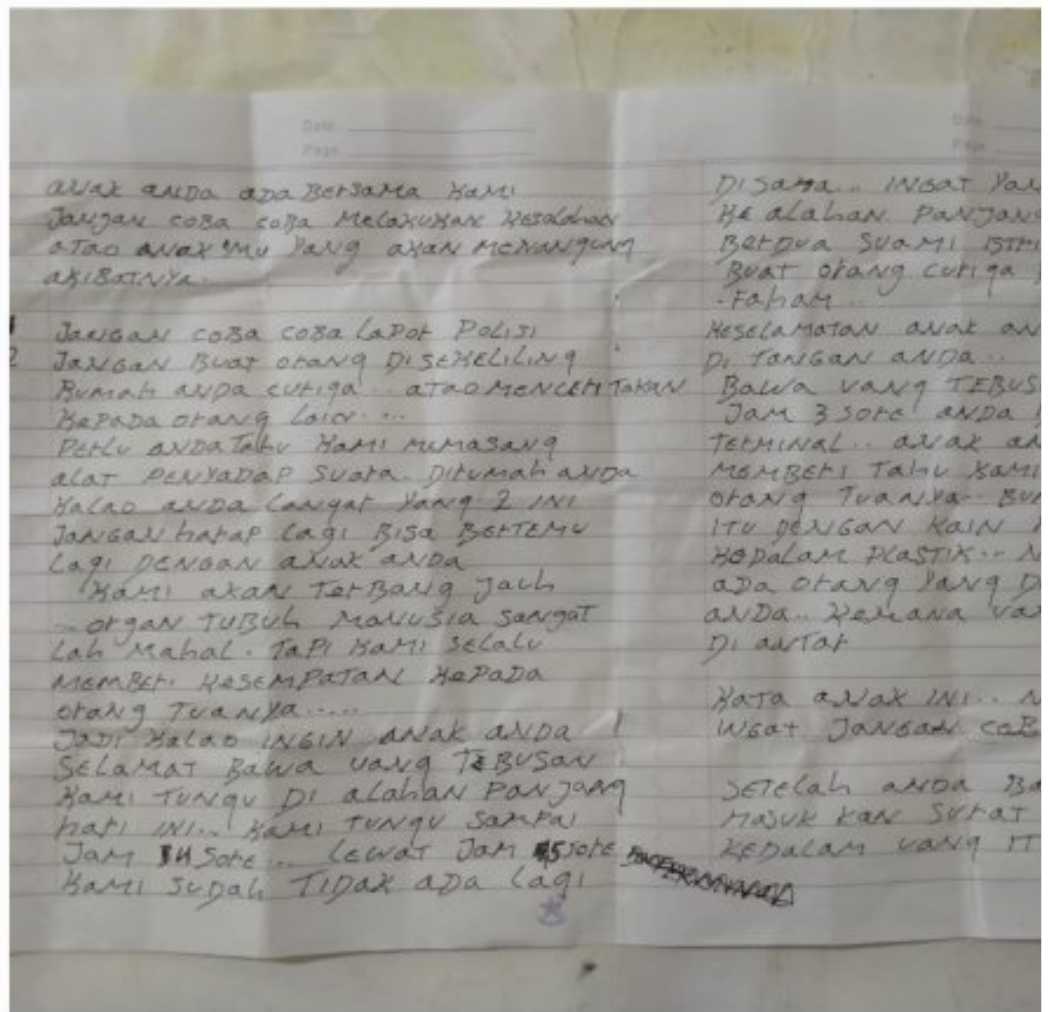 Date
Page
anak anda ada Bersama Kami
Jangan coBa coBa Melakukan Kesalahan
atao anak mu Yang akan Menangung
akiBatnya.
Jangan coBa coBa Lapor Polisi
2 Jangan Buat orang DiseKeliling
Rumah anda curiga .. atao Menceritakan
KePada orang Lain ...
Perlu anda Tahu Kami Mumasang
alat Penyadap Suara Dirumah anda
Kalao anda Langar Yang 2 ini
Jangan harap Lagi Bisa Bertemu
Lagi Dengan anak anda
Kami akan Terbang Jauh
.. organ TuBuh Manusia Sangat
Lah Mahal. TaPi Kami Selalu
MemBeri KesemPatan KePada
orang Tuanya .....
Jadi Kalao ingin anak anda
Selamat Bawa uang TeBusan
Kami Tungu Di alahan PanJang
hari ini.. Kami Tungu SamPai
Jam Sore ... Lewat Jam 5 Sore
Kami Sudah Tidak ada Lagi
Date
Page
Disana .. ingat Yan
Ke alahan PanJang
Berdua Suami istri
Buat orang curiga
-Faham..
Keselamatan anak an
Di Tangan anda ..
Bawa uang TeBus
Jam 3 Sore anda
Terminal .. anak an
MemBeri Tahu Kami
orang Tuanya ..
itu Dengan Kain
KeDalam Plastik ..
ada orang Yang D
anda.. Kemana
Di antar
Kata anak ini ..
ingat Jangan coB
Setelah anda Ba
Masuk kan Surat
KeDalam uang it